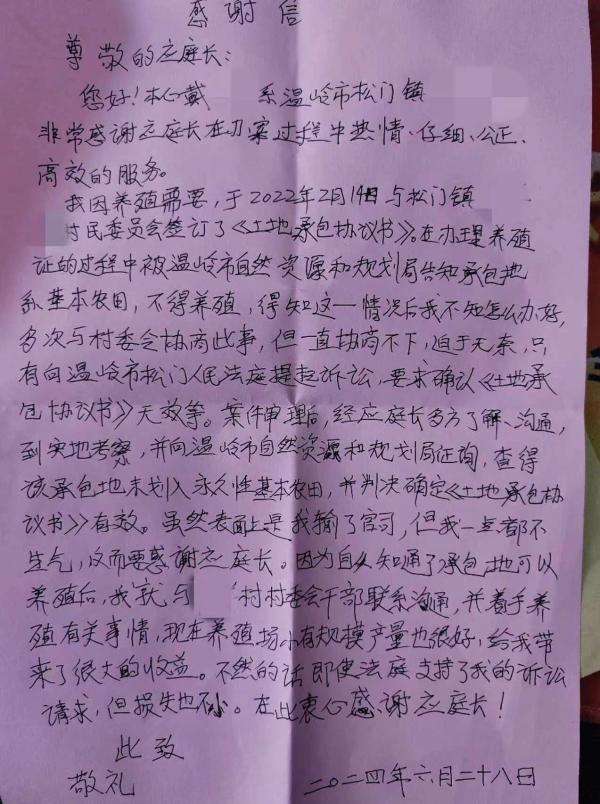 感谢信
尊敬的应庭长：
您好！本人戴 系温岭市松门镇
非常感谢应庭长在办案过程中热情、仔细、公正、
高效的服务。
我因养殖需要，于2022年2月14日与松门镇
村民委员会签订了《土地承包协议书》。在办理养殖
证的过程中被温岭市自然资源和规划局告知承包地
系基本农田，不得养殖，得知这一情况后我不知怎么办好，
多次与村委会协商此事，但一直协商不下，迫于无奈，只
有向温岭市松门人民法庭提起诉讼，要求确认《土地承
包协议书》无效等。案件审理后，经应庭长多方了解、沟通，
到实地考察，并向温岭市自然资源和规划局征询，查得
该承包地未划入永久性基本农田，并判决确定《土地承包协
议书》有效。虽然表面上是我输了官司，但我一点都不
生气，反而要感谢应庭长。因为自从知道了承包地可以
养殖后，我就与 村村委会干部联系沟通，并着手养
殖有关事情，现在养殖场小有规模产量也很好，给我带
来了很大的收益。不然的话即使法庭支持了我的诉讼
请求，但损失也不小。在此衷心感谢应庭长！
此致
敬礼 二〇二四年六月二十八日